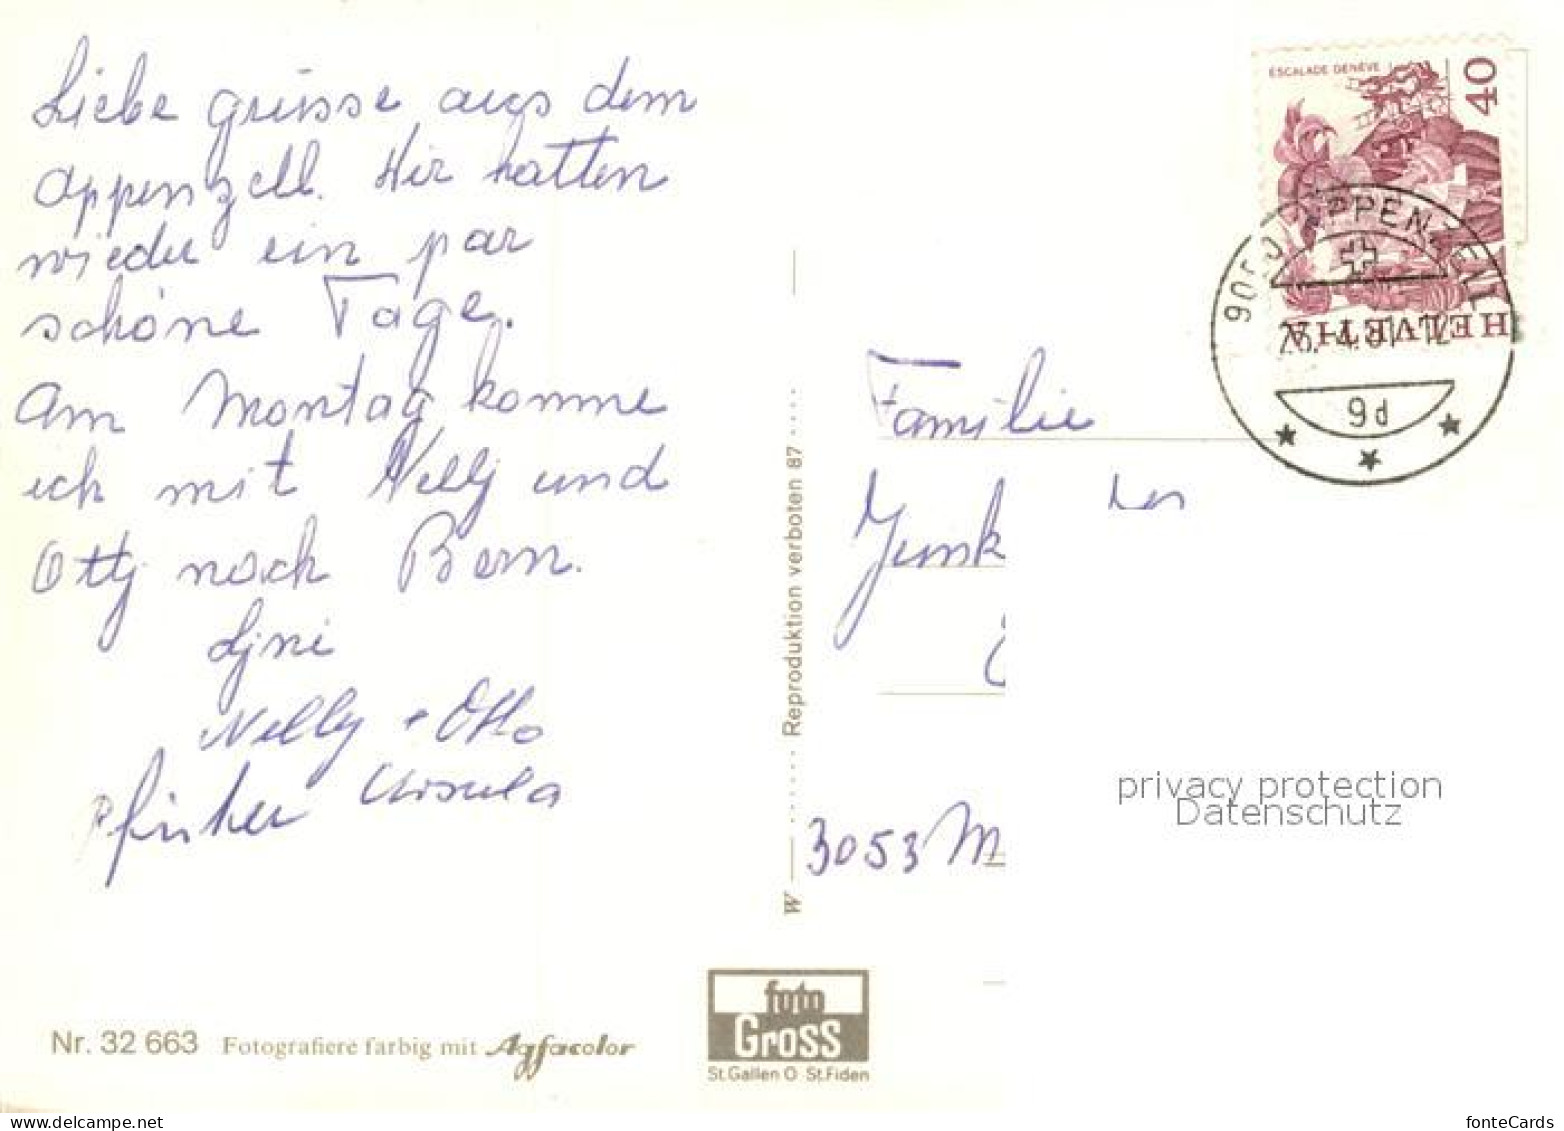 Liebe grüsse aus dem
Appenzell. Wir hatten
wieder ein par
schöne Tage.
Am Montag komme
ich mit Nelly und
Otty nach Bern.
Nelly + Otto
Ursula
ESCALADE GENÈVE
40
HELVETIA
9050 APPENZELL
9d
Familie
Junk
3053 M
W Reproduktion verboten 87
privacy protection
Datenschutz
Nr. 32 663 Fotografiere farbig mit Agfacolor
foto
Gross
St.Gallen O St.Fiden
www.delcampe.net
fonteCards